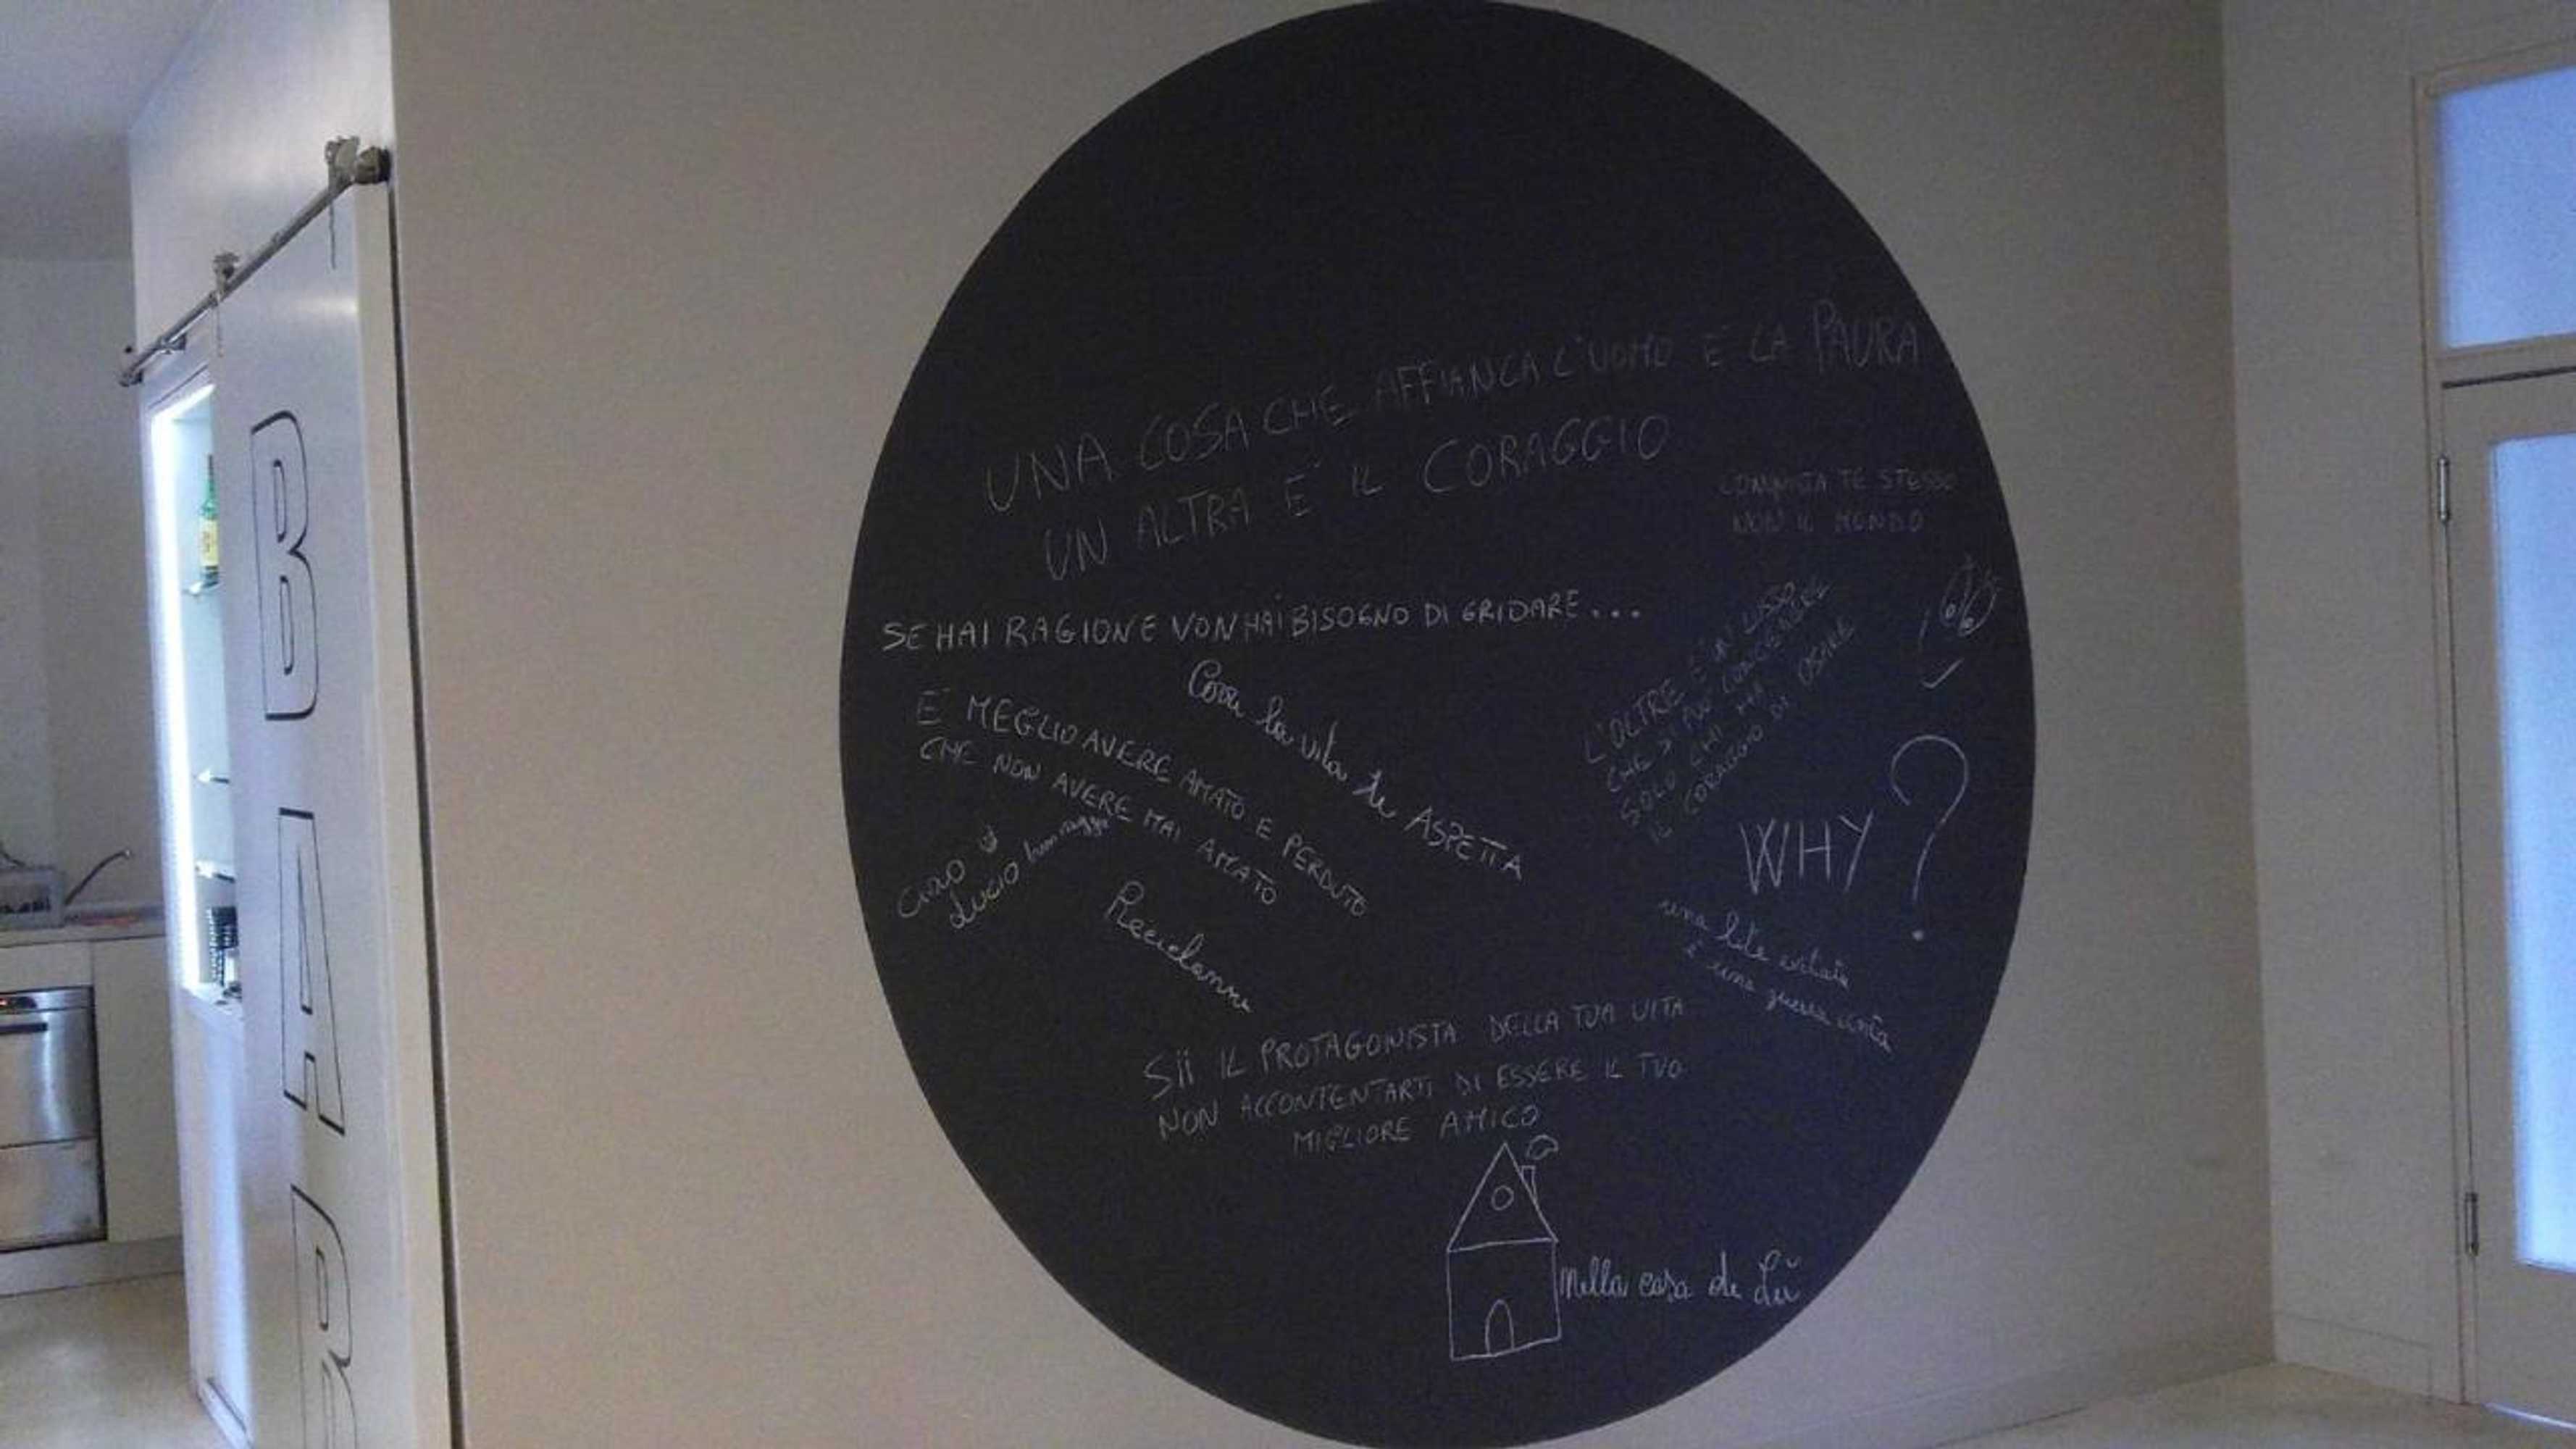 BAR
UNA COSA CHE AFFIANCA L'UOMO E LA PAURA
UN ALTRA E' IL CORAGGIO
CONQUISTA TE STESSO
NON IL MONDO
SE HAI RAGIONE NON HAI BISOGNO DI GRIDARE...
Corri la vita te ASPETTA
E' MEGLIO AVERE AMATO E PERDUTO
CHE NON AVERE MAI AMATO
L'OLTRE E' UN LUSSO
CHE SI PUO' CONCEDERE
SOLO CHI HA
IL CORAGGIO DI OSARE
Ciao
Lucio
WHY?
una lite evitata
è una guerra vinta
SII IL PROTAGONISTA DELLA TUA VITA
NON ACCONTENTARTI DI ESSERE IL TUO
MIGLIORE AMICO
nella casa di Lù